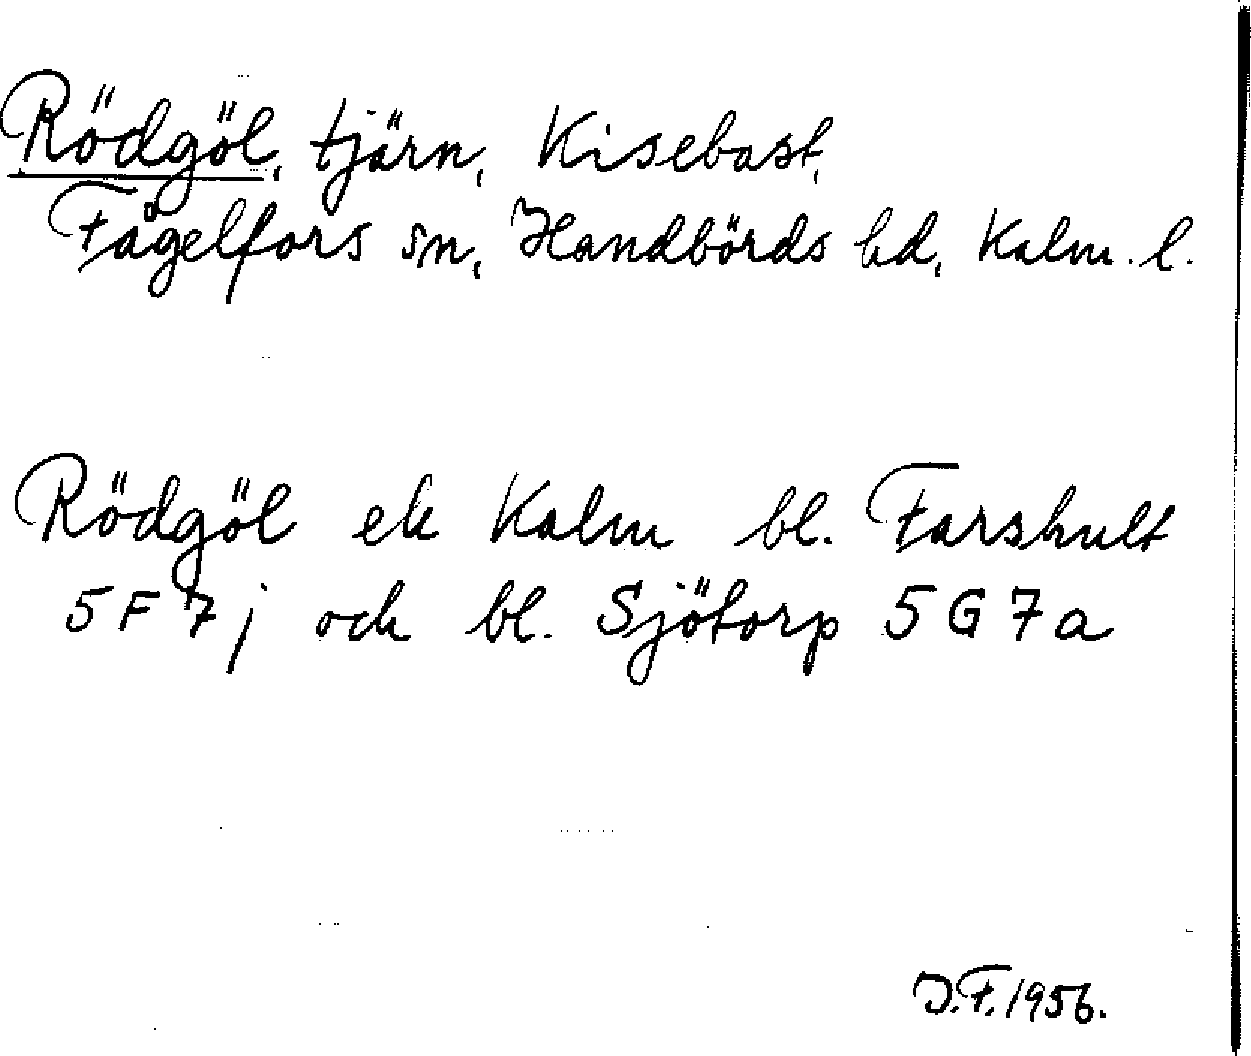 Rödgöl, tjärn, Kisebast,
Fågelfors sn, Handbörds hd, Kalm. l.
Rödgöl ek Kalm bl. Farshult
5F 7j och bl. Sjötorp 5G7a
J.F. 1956.